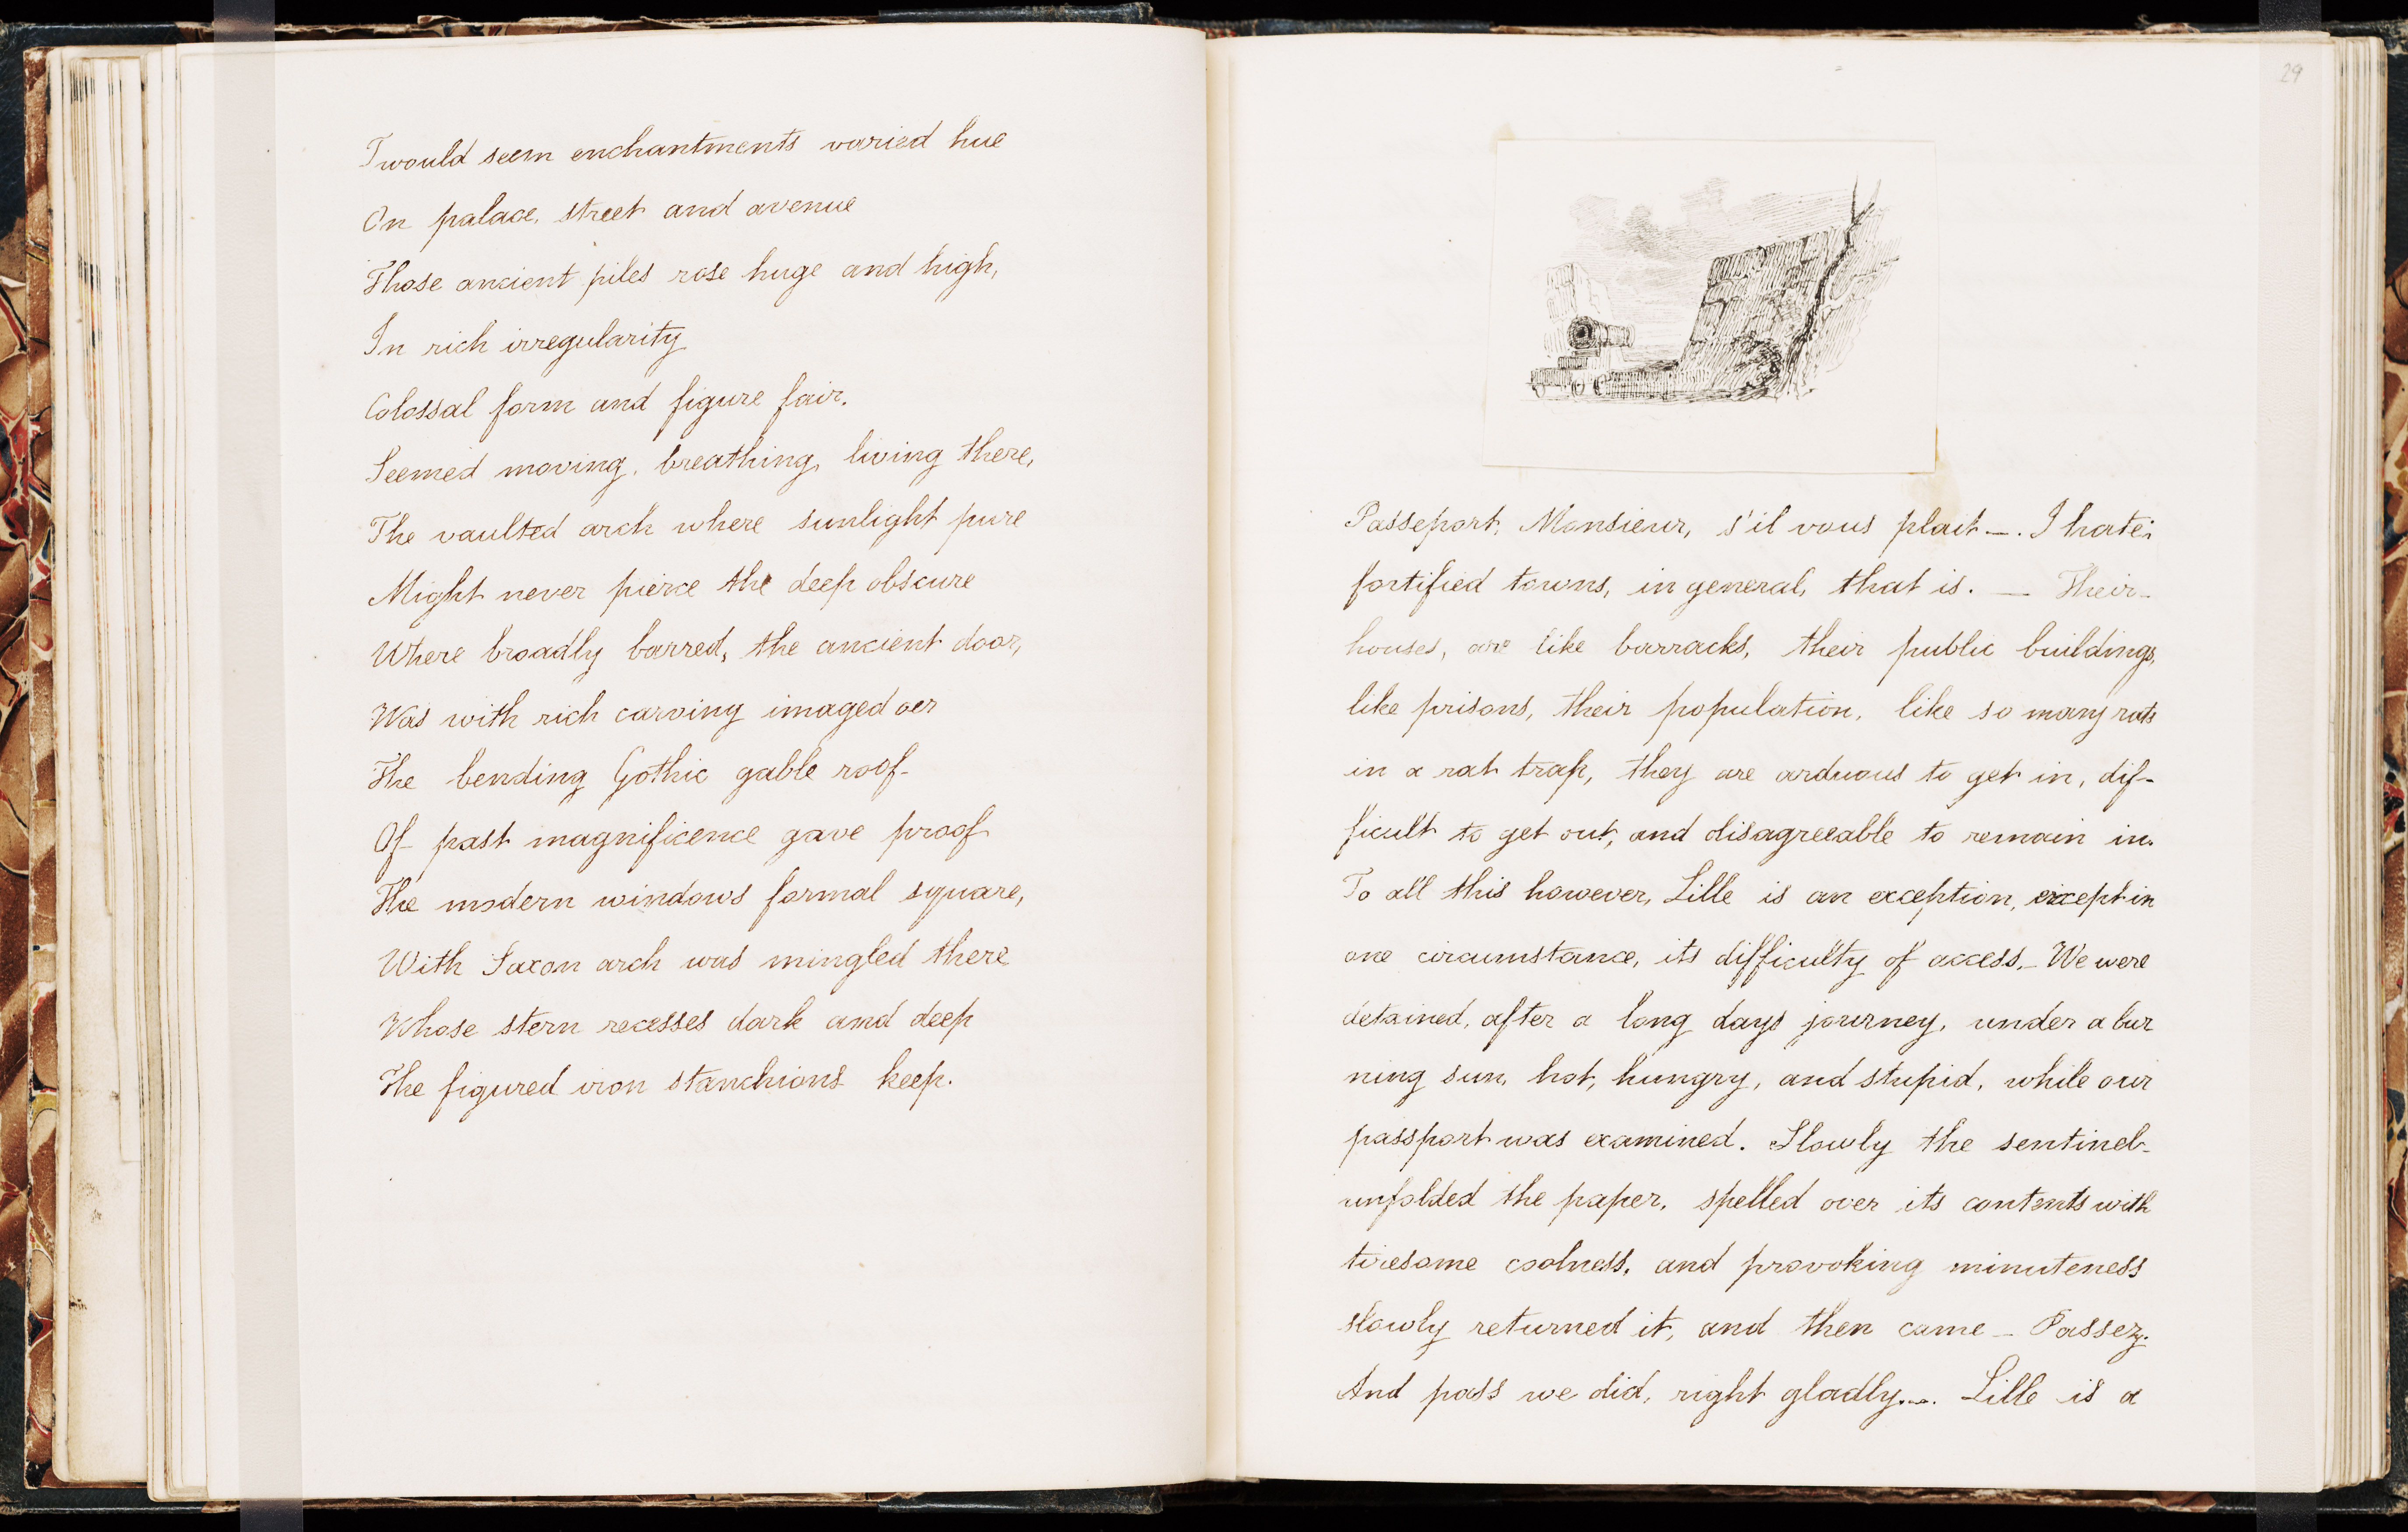 Twould seem enchantments varied hue
On palace, street and avenue
Those ancient piles rose huge and high,
In rich irregularity
Colossal form and figure fair.
Seemed moving, breathing, living there,
The vaulted arch where sunlight pure
Might never pierce the deep obscure
Where broadly barred, the ancient door,
Was with rich carving imaged oer
The bending Gothic gable roof
Of past magnificence gave proof
The modern windows formal square,
With Saxon arch was mingled there
Whose stern recesses dark and deep
The figured iron stanchions keep.
29
Passeport, Monsieur, s'il vous plait —. I hate
fortified towns, in general, that is. — Their
houses, are like barracks, their public buildings,
like prisons, their population, like so many rats
in a rat trap, they are arduous to get in, dif-
ficult to get out, and disagreeable to remain in.
To all this however, Lille is an exception, except in
one circumstance, its difficulty of access. — We were
detained, after a long days journey, under a bur
ning sun, hot, hungry, and stupid, while our
passport was examined. Slowly the sentinel
unfolded the paper, spelled over its contents with
tiresome coolness, and provoking minuteness
slowly returned it, and then came — Passez.
And pass we did, right gladly.—. Lille is a